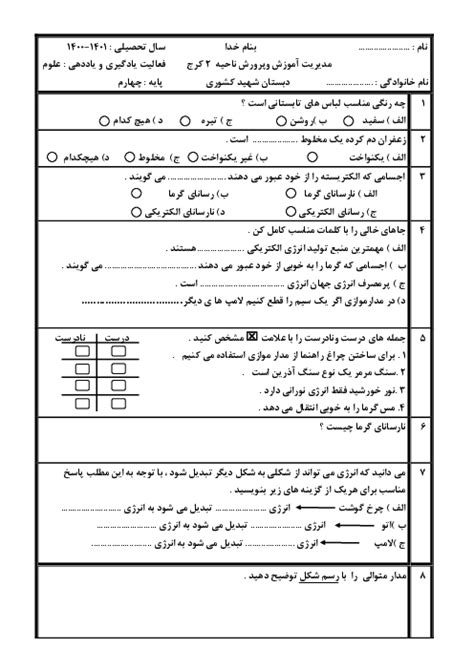 نام : ...................... بنام خدا سال تحصیلی : ۱۴۰۱-۱۴۰۰
مدیریت آموزش وپرورش ناحیه ۲ کرج فعالیت یادگیری و یاددهی : علوم
نام خانوادگی : .................... دبستان شهید کشوری پایه : چهارم
۱ چه رنگی مناسب لباس های تابستانی است ؟
الف ) سفید ب )روشن ج ) تیره د ) هیچ کدام
۲ زعفران دم کرده یک مخلوط ................... است .
الف ) یکنواخت ب) غیر یکنواخت ج) مخلوط د) هیچکدام
۳ اجسامی که الکتریسته را از خود عبور می دهند ......................... می گویند .
الف ) نارسانای گرما ب) رسانای گرما
ج) رسانای الکتریکی د) نارسانای الکتریکی
۴ جاهای خالی را با کلمات مناسب کامل کن .
الف ) مهمترین منبع تولید انرژی الکتریکی ....................هستند .
ب ) اجسامی که گرما را به خوبی از خود عبور می دهند ...................................... می گویند .
ج ) پرمصرف انرژی جهان انرژی .................................... است .
د) در مدارموازی اگر یک سیم را قطع کنیم لامپ ها ی دیگر..................................
۵ جمله های درست ونادرست را با علامت ☒ مشخص کنید . درست نادرست
۱ . برای ساختن چراغ راهنما از مدار موازی استفاده می کنیم .
۲ .سنگ مرمر یک نوع سنگ آذرین است .
۳ .نور خورشید فقط انرژی نورانی دارد .
۴. مس گرما را به خوبی انتقال می دهد .
۶ نارسانای گرما چیست ؟
۷ می دانید که انرژی می تواند از شکلی به شکل دیگر تبدیل شود ، با توجه به این مطلب پاسخ
مناسب برای هریک از گزینه های زیر بنویسید .
الف ) چرخ گوشت ← انرژی ...................... تبدیل می شود به انرژی .........................
ب )اتو ← انرژی ...................... تبدیل می شود به انرژی .........................
ج )لامپ ← انرژی ..................... تبدیل می شود به انرژی .........................
۸ مدار متوالی را با رسم شکل توضیح دهید .